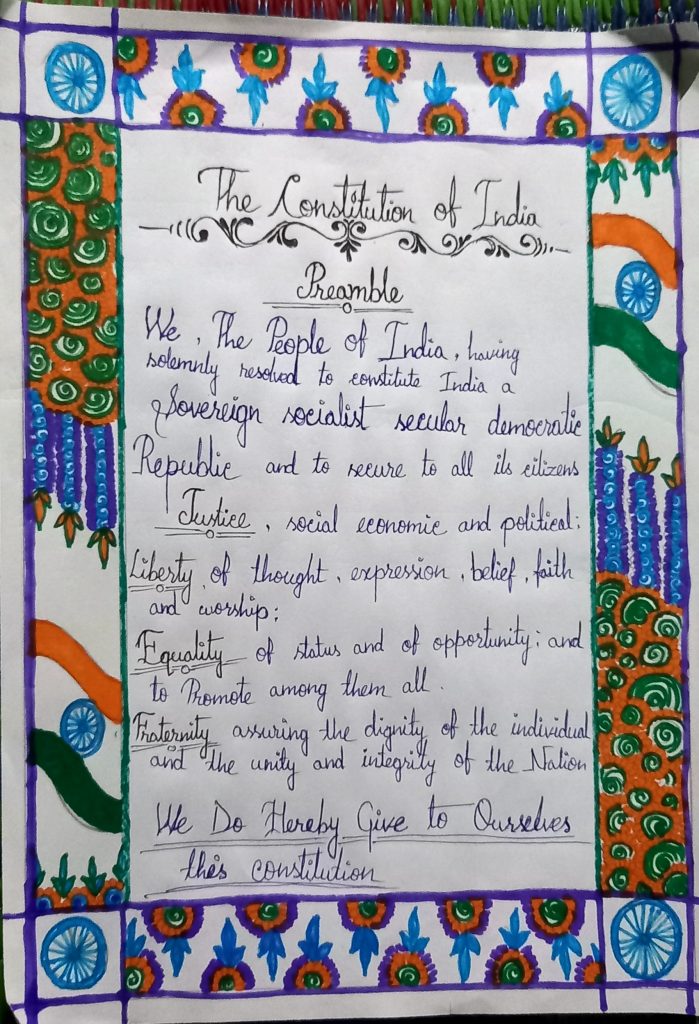 The Constitution of India
Preamble
We, The People of India, having
solemnly resolved to constitute India a
Sovereign socialist secular democratic
Republic and to secure to all its citizens
Justice, social economic and political;
Liberty of thought, expression, belief, faith
and worship;
Equality of status and of opportunity; and
to Promote among them all.
Fraternity assuring the dignity of the individual
and the unity and integrity of the Nation
We Do Hereby Give to Ourselves
this constitution